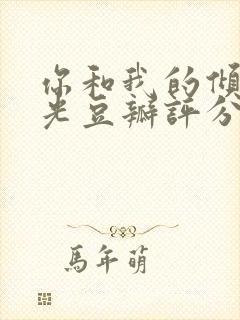 你和我的倾
光豆瓣评分
馬年萌